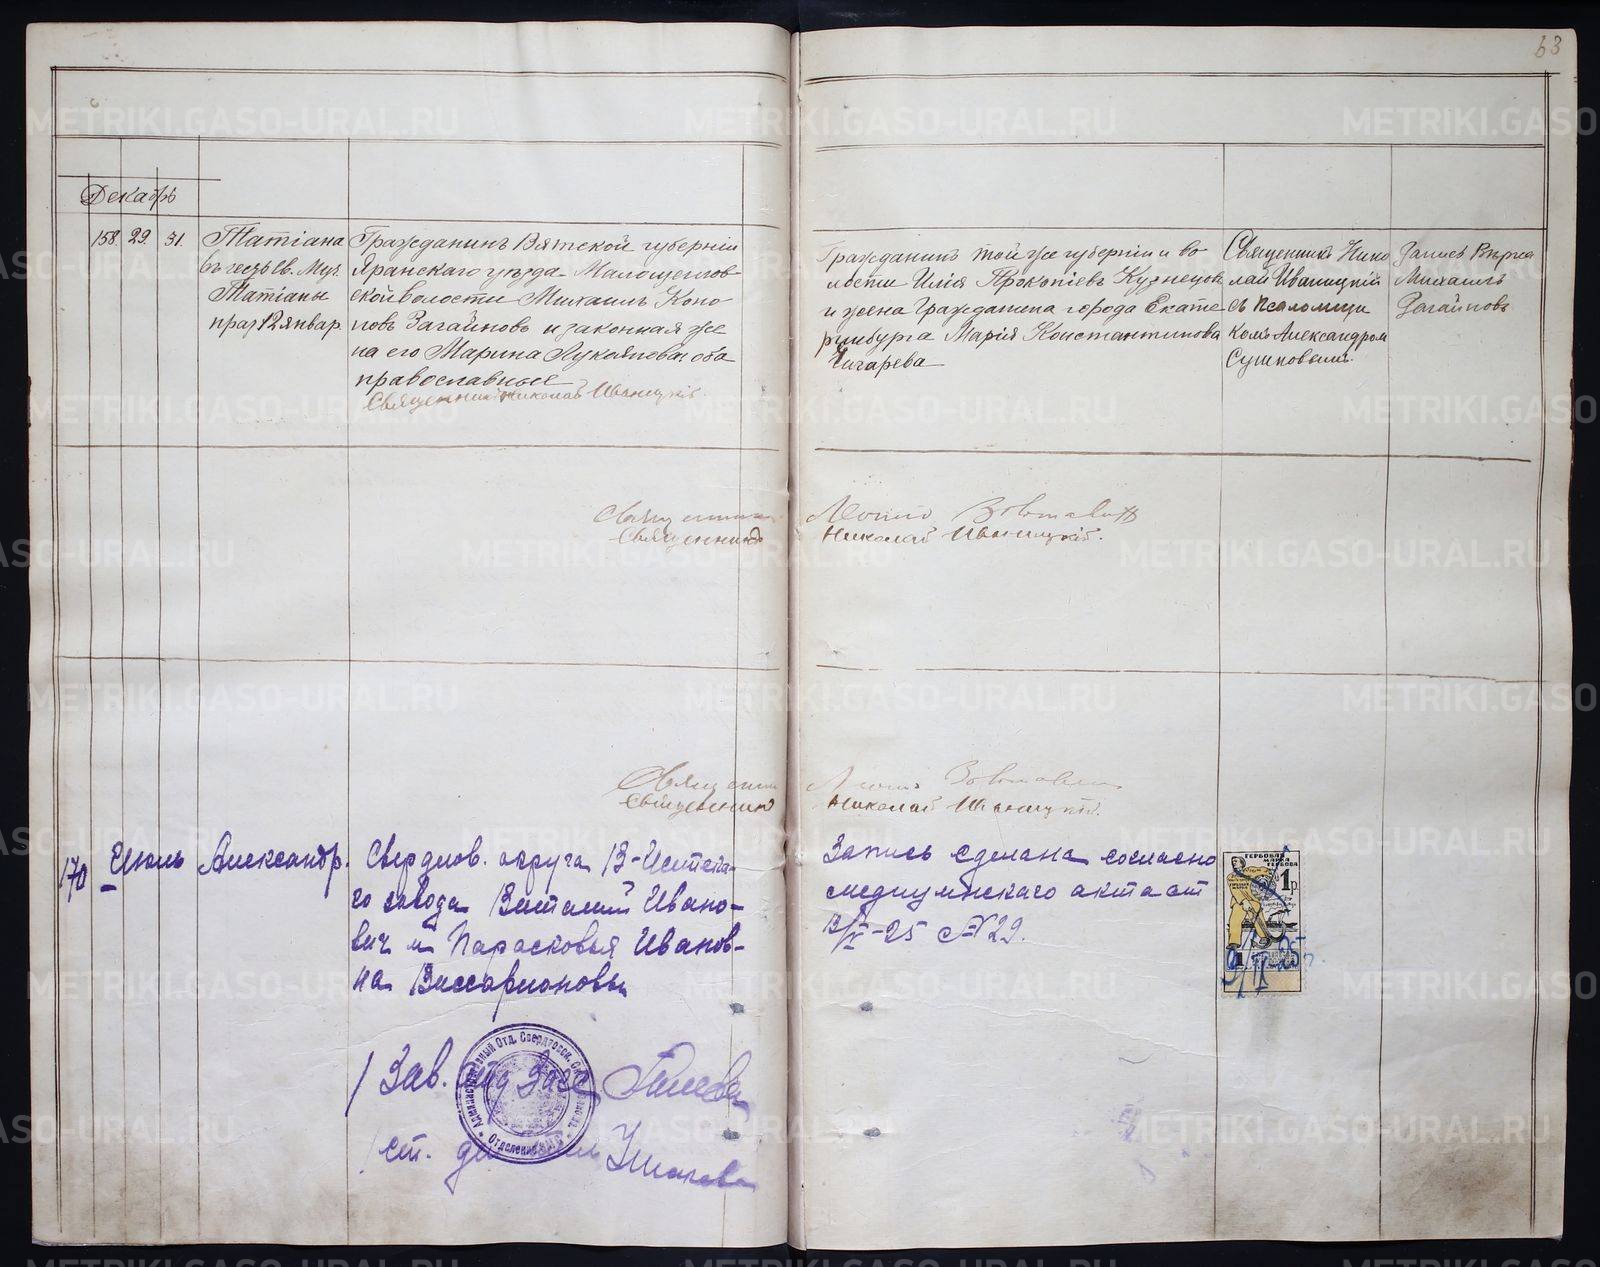 63
Декабрь
158. 29. 31.
Татіана
въ честь Св. Муч.
Татіаны
праз. 12 январ.
Гражданинъ Вятской губерніи
Яранскаго уѣзда Малощегловской
волости Михаилъ Коноповъ
Загайновъ и законная же
на его Марина Лукоянова, оба
православные
Священникъ Николай Иваницкій.
Гражданинъ той же губерніи и во
лости Илія Прокопіевъ Кузнецовъ
и жена Гражданина города Екате
ринбурга Марія Константинова
Чигарева
Священникъ Нико
лай Иваницкій
съ Псаломщи
комъ Александромъ
Сушковымъ.
Запись Вѣрна
Михаилъ
Загайновъ
Священникъ
Священникъ Николай Иваницкій.
Священникъ
Священникъ Николай Иваницкій.
170
Июль
Александр.
Свердлов. округа В-Исетска-
го завода Виталий Ивано-
вич и Парасковья Иванов-
на Виссарионовы
Запись сделана согласно
медицинскаго акта от
-25 № 29.
ГЕРБОВАЯ МАРКА
1 р.
25 г.
Зав.
ст.
Административный Отд. Свердловск.
Отделение ЗАГС
METRIKI.GASO-URAL.RU